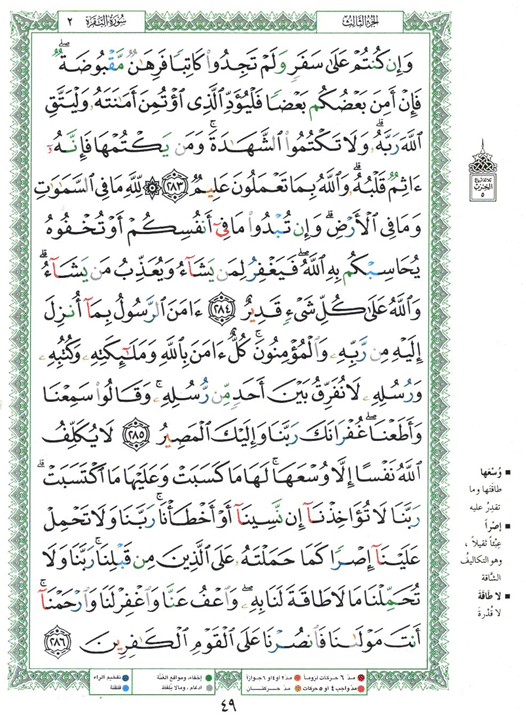 الجزء الثالث
سورة البقرة ٢
وَإِن كُنتُمْ عَلَىٰ سَفَرٍ وَلَمْ تَجِدُوا۟ كَاتِبًا فَرِهَٰنٌ مَّقْبُوضَةٌ ۖ
فَإِنْ أَمِنَ بَعْضُكُم بَعْضًا فَلْيُؤَدِّ ٱلَّذِى ٱؤْتُمِنَ أَمَٰنَتَهُۥ وَلْيَتَّقِ
ٱللَّهَ رَبَّهُۥ ۗ وَلَا تَكْتُمُوا۟ ٱلشَّهَٰدَةَ ۚ وَمَن يَكْتُمْهَا فَإِنَّهُۥٓ
ءَاثِمٌ قَلْبُهُۥ ۗ وَٱللَّهُ بِمَا تَعْمَلُونَ عَلِيمٌ ٢٨٣ ۞ لِّلَّهِ مَا فِى ٱلسَّمَٰوَٰتِ
وَمَا فِى ٱلْأَرْضِ ۗ وَإِن تُبْدُوا۟ مَا فِىٓ أَنفُسِكُمْ أَوْ تُخْفُوهُ
يُحَاسِبْكُم بِهِ ٱللَّهُ ۖ فَيَغْفِرُ لِمَن يَشَآءُ وَيُعَذِّبُ مَن يَشَآءُ ۗ
وَٱللَّهُ عَلَىٰ كُلِّ شَىْءٍ قَدِيرٌ ٢٨٤ ءَامَنَ ٱلرَّسُولُ بِمَآ أُنزِلَ
إِلَيْهِ مِن رَّبِّهِۦ وَٱلْمُؤْمِنُونَ ۚ كُلٌّ ءَامَنَ بِٱللَّهِ وَمَلَٰٓئِكَتِهِۦ وَكُتُبِهِۦ
وَرُسُلِهِۦ لَا نُفَرِّقُ بَيْنَ أَحَدٍ مِّن رُّسُلِهِۦ ۚ وَقَالُوا۟ سَمِعْنَا
وَأَطَعْنَا ۖ غُفْرَانَكَ رَبَّنَا وَإِلَيْكَ ٱلْمَصِيرُ ٢٨٥ لَا يُكَلِّفُ
ٱللَّهُ نَفْسًا إِلَّا وُسْعَهَا ۚ لَهَا مَا كَسَبَتْ وَعَلَيْهَا مَا ٱكْتَسَبَتْ ۗ
رَبَّنَا لَا تُؤَاخِذْنَآ إِن نَّسِينَآ أَوْ أَخْطَأْنَا ۚ رَبَّنَا وَلَا تَحْمِلْ
عَلَيْنَآ إِصْرًا كَمَا حَمَلْتَهُۥ عَلَى ٱلَّذِينَ مِن قَبْلِنَا ۚ رَبَّنَا وَلَا
تُحَمِّلْنَا مَا لَا طَاقَةَ لَنَا بِهِۦ ۖ وَٱعْفُ عَنَّا وَٱغْفِرْ لَنَا وَٱرْحَمْنَآ ۚ
أَنتَ مَوْلَىٰنَا فَٱنصُرْنَا عَلَى ٱلْقَوْمِ ٱلْكَٰفِرِينَ ٢٨٦
الحزب
٥
■ وُسْعَها
طاقَتَها وما
تقدِرُ عليه
■ إصْراً
عِبْئاً ثقيلاً ،
وهو التكاليفُ
الشَّاقة
■ لا طاقةَ
لا قُدرةَ
مدّ ٦ حركات لزوماً مدّ ٢ أو ٤ أو ٦ جوازاً إخفاء، ومواقع الغُنَّة تفخيم الراء
مدّ واجب ٤ أو ٥ حركات مدّ حركتان إدغام، وما لا يُلفظ قلقلة
٤٩